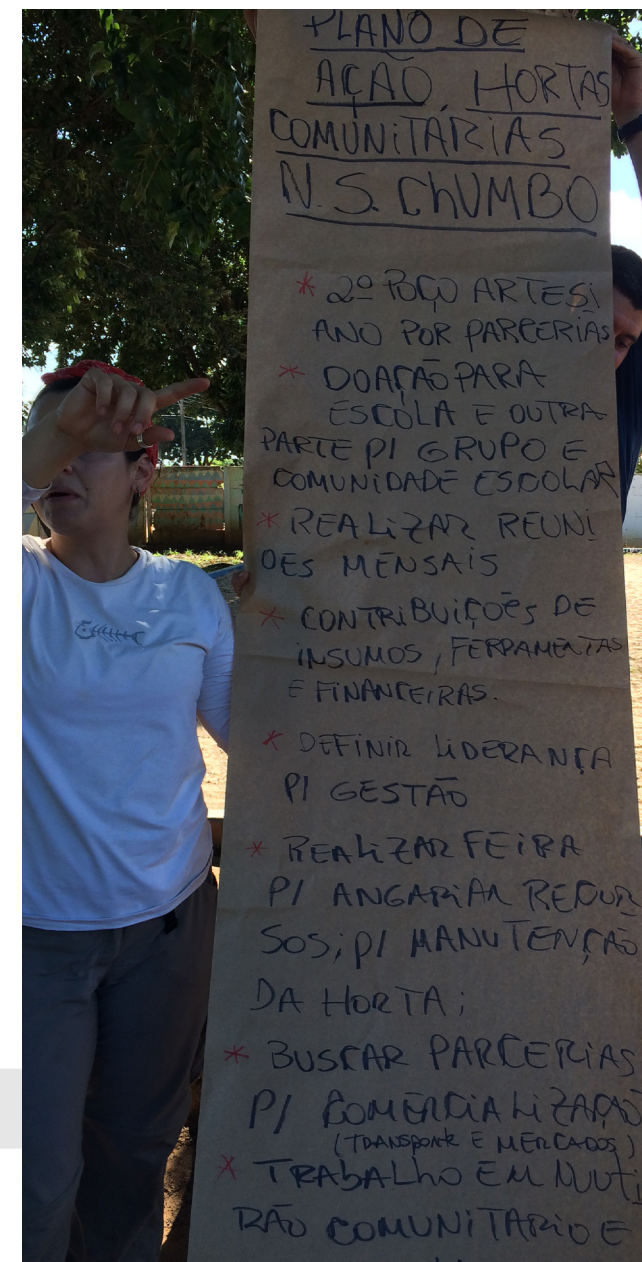 PLANO DE
AÇÃO, HORTAS
COMUNiTÁRiAS
N. S. ChUMBO
* 2º POÇO ARTESi
ANO POR PARCERIAS
* DOAÇÃO PARA
ESCOLA E OUTRA
PARTE P/ GRUPO E
COMUNIDADE ESCOLAR
* REALiZAR REUNi
OES MENSAiS
* CONTRiBUiÇOES DE
iNSUMOS, FERRAMENTAS
E FiNANCEIRAS.
* DEFiNiR LiDERANÇA
P/ GESTÃO
* REALiZAR FEiRA
P/ ANGARiAR RECUR
SOS; P/ MANUTENÇÃO
DA HORTA;
* BUSCAR PARCERiAS
P/ COMERCiALiZAÇÃO
(TRANSPORTE E MERCADOS)
* TRABALhO EM MUTi
RÃO COMUNiTARiO E